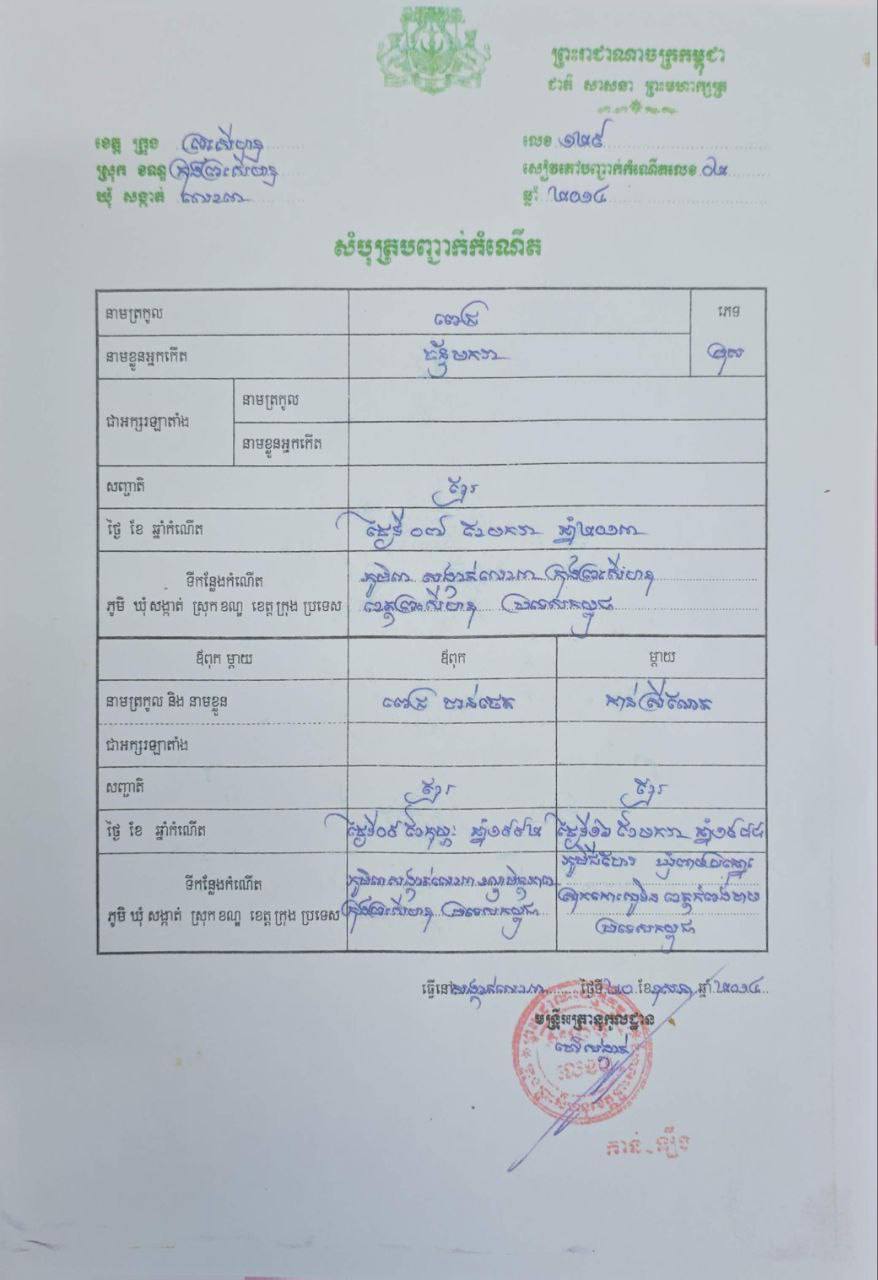 ព្រះរាជាណាចក្រកម្ពុជា
ជាតិ សាសនា ព្រះមហាក្សត្រ
ខេត្ត ក្រុង ព្រះសីហនុ
ស្រុក ខណ្ឌ ក្រុងព្រះសីហនុ
ឃុំ សង្កាត់ លេខ៣
លេខ ១២៩
សៀវភៅបញ្ជាក់កំណើតលេខ ០២
ឆ្នាំ ២០១៤
សំបុត្របញ្ជាក់កំណើត
នាមត្រកូល ពេជ្រ
ភេទ
នាមខ្លួនអ្នកកើត មករា
ប្រុស
ជាអក្សរឡាតាំង
នាមត្រកូល
នាមខ្លួនអ្នកកើត
សញ្ជាតិ ខ្មែរ
ថ្ងៃ ខែ ឆ្នាំកំណើត ថ្ងៃទី ០៧ ខែមករា ឆ្នាំ២០១៣
ទីកន្លែងកំណើត
ភូមិ ឃុំ សង្កាត់ ស្រុក ខណ្ឌ ខេត្ត ក្រុង ប្រទេស
ភូមិ៣ សង្កាត់លេខ៣ ក្រុងព្រះសីហនុ
ខេត្តព្រះសីហនុ ប្រទេសកម្ពុជា
ឪពុក ម្តាយ ឪពុក ម្តាយ
នាមត្រកូល និង នាមខ្លួន ពេជ្រ កាន់ស្រីណែត
ជាអក្សរឡាតាំង
សញ្ជាតិ ខ្មែរ ខ្មែរ
ថ្ងៃ ខែ ឆ្នាំកំណើត ថ្ងៃទី០៩ ខែកុម្ភៈ ឆ្នាំ១៩៩២ ថ្ងៃទី១៦ ខែមករា ឆ្នាំ១៩៨៨
ទីកន្លែងកំណើត
ភូមិ ឃុំ សង្កាត់ ស្រុក ខណ្ឌ ខេត្ត ក្រុង ប្រទេស
ភូមិ៣ សង្កាត់លេខ៣ ខណ្ឌមិត្តភាព
ក្រុងព្រះសីហនុ ប្រទេសកម្ពុជា
ប្រទេសកម្ពុជា
ធ្វើនៅ សង្កាត់លេខ៣ ថ្ងៃទី ២០ ខែ ឧសភា ឆ្នាំ ២០១៤
មន្ត្រីអត្រានុកូលដ្ឋាន
ចៅសង្កាត់